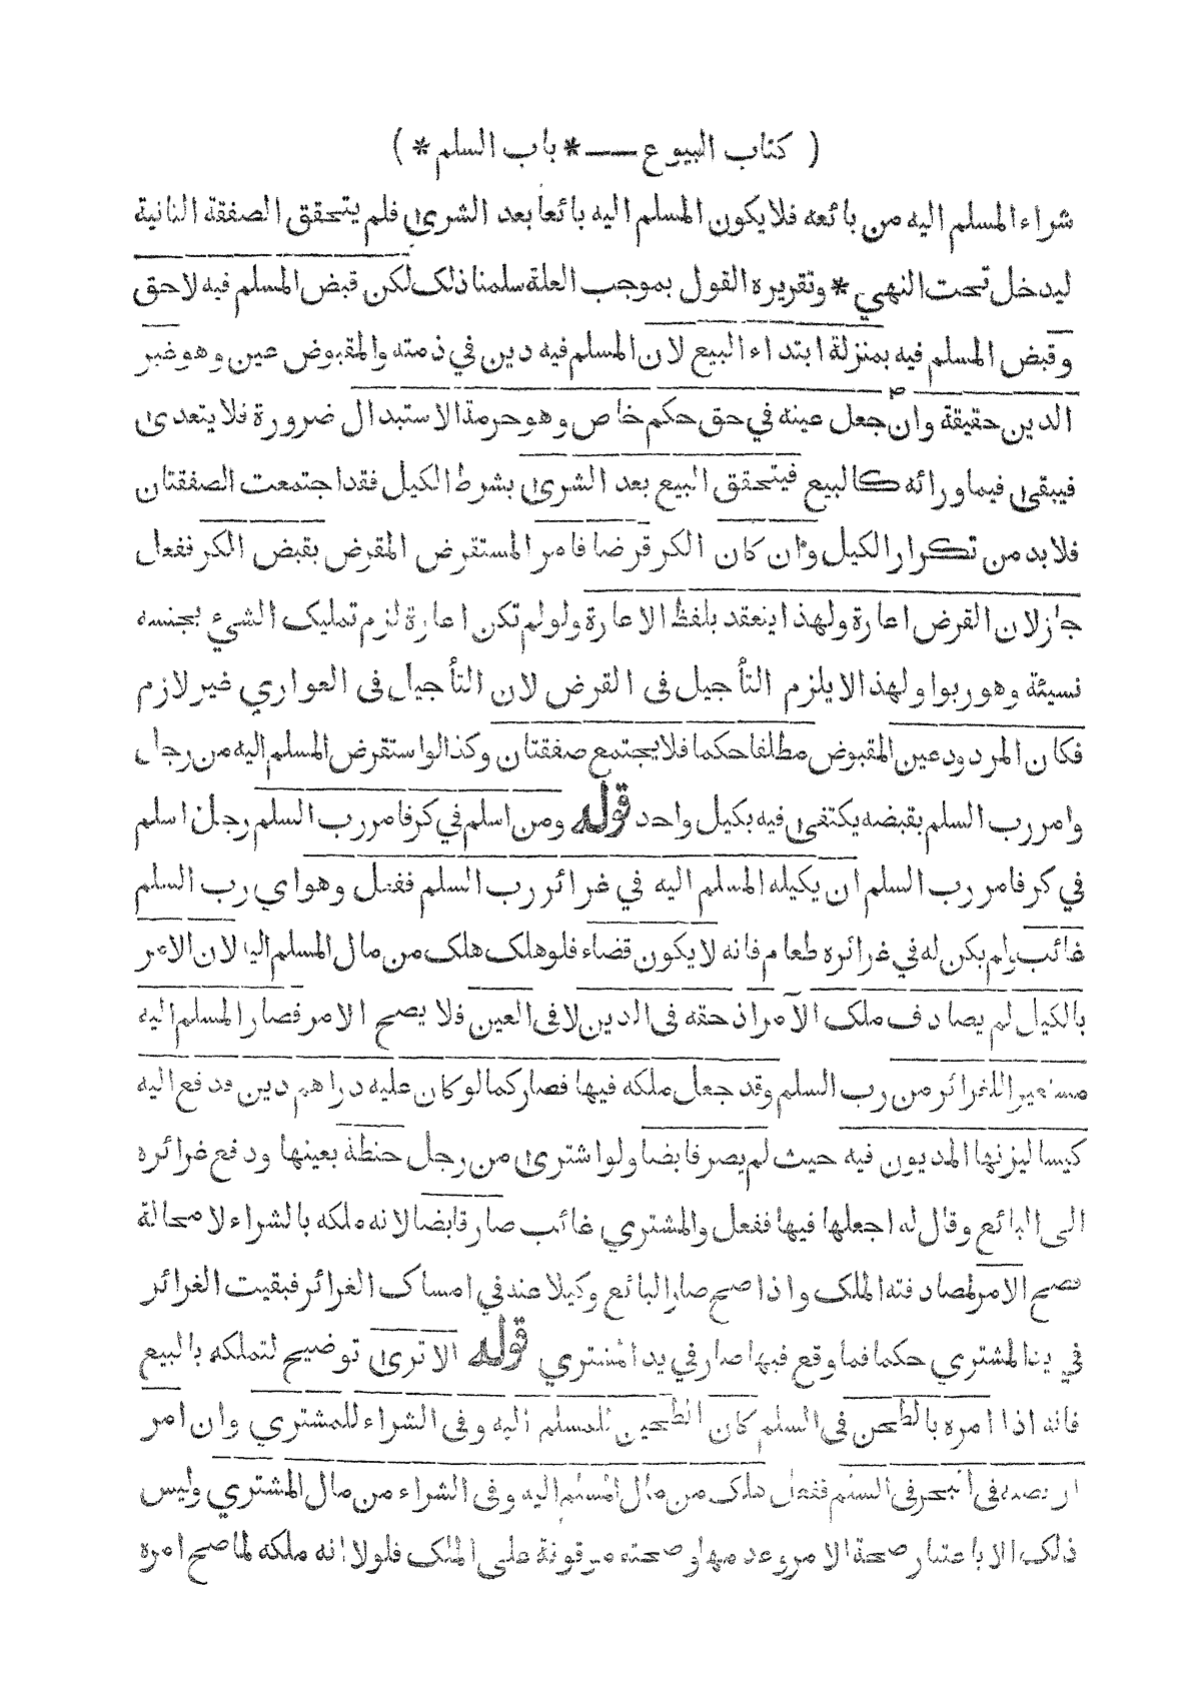 ( كتاب البيوع —— * باب السلم * )
شراء المسلم اليه من بائعه فلا يكون المسلم اليه بائعا بعد الشرى فلم يتحقق الصفقة الثانية
ليدخل تحت النهي * وتقريره القول بموجب العلة سلمنا ذلك لكن قبض المسلم فيه لاحق
وقبض المسلم فيه بمنزلة ابتداء البيع لان المسلم فيه دين في ذمته والمقبوض عين وهو غير
الدين حقيقة وان جعل عينه في حق حكم خاص وهو حرمة الاستبدال ضرورة فلا يتعدى
فيبقى فيما ورائه كالبيع فيتحقق البيع بعد الشرى بشرط الكيل فقد اجتمعت الصفقتان
فلا بد من تكرار الكيل وان كان الكر قرضا فامر المستقرض المقرض بقبض الكر ففعل
جاز لان القرض اعارة ولهذا ينعقد بلفظ الاعارة ولو لم تكن اعارة لزم تمليك الشيء بجنسه
نسيئة وهو ربوا ولهذا لا يلزم التأجيل فى القرض لان التأجيل فى العواري غير لازم
فكان المردود عين المقبوض مطلقا حكما فلا يجتمع صفقتان وكذا لو استقرض المسلم اليه من رجل
وامر رب السلم بقبضه يكتفى فيه بكيل واحد قوله ومن اسلم في كر فامر رب السلم رجل اسلم
في كر فامر رب السلم ان يكيله المسلم اليه في غرائر رب السلم ففعل وهو اي رب السلم
غائب ولم يكن له في غرائره طعام فانه لا يكون قضاء فلو هلك هلك من مال المسلم اليه لان الامر
بالكيل لم يصادف ملك الآمر اذ حقه فى الدين لا فى العين فلا يصح الامر فصار المسلم اليه
مستعيرا للغرائر من رب السلم وقد جعل ملكه فيها فصار كما لو كان عليه دراهم دين فدفع اليه
كيسا ليزنها المديون فيه حيث لم يصر قابضا ولو اشترى من رجل حنطة بعينها ودفع غرائره
الى البائع وقال له اجعلها فيها ففعل والمشتري غائب صار قابضا لانه ملكه بالشراء لا محالة
فصح الامر لمصادفته الملك واذا صح صار البائع وكيلا عنه في امساك الغرائر فبقيت الغرائر
في يد المشتري حكما فما وقع فيها صار في يد المشتري قوله الا ترى توضيح لتملكه بالبيع
فانه اذا امره بالطحن فى السلم كان الطحين للمسلم اليه وفى الشراء للمشتري وان امر
ان يصبه فى البحر فى السلم ففعل هلك من مال المسلم اليه وفى الشراء من مال المشتري وليس
ذلك الا باعتبار صحة الامر وعدمها وصحته موقوفة على الملك فلولا انه ملكه لما صح امره